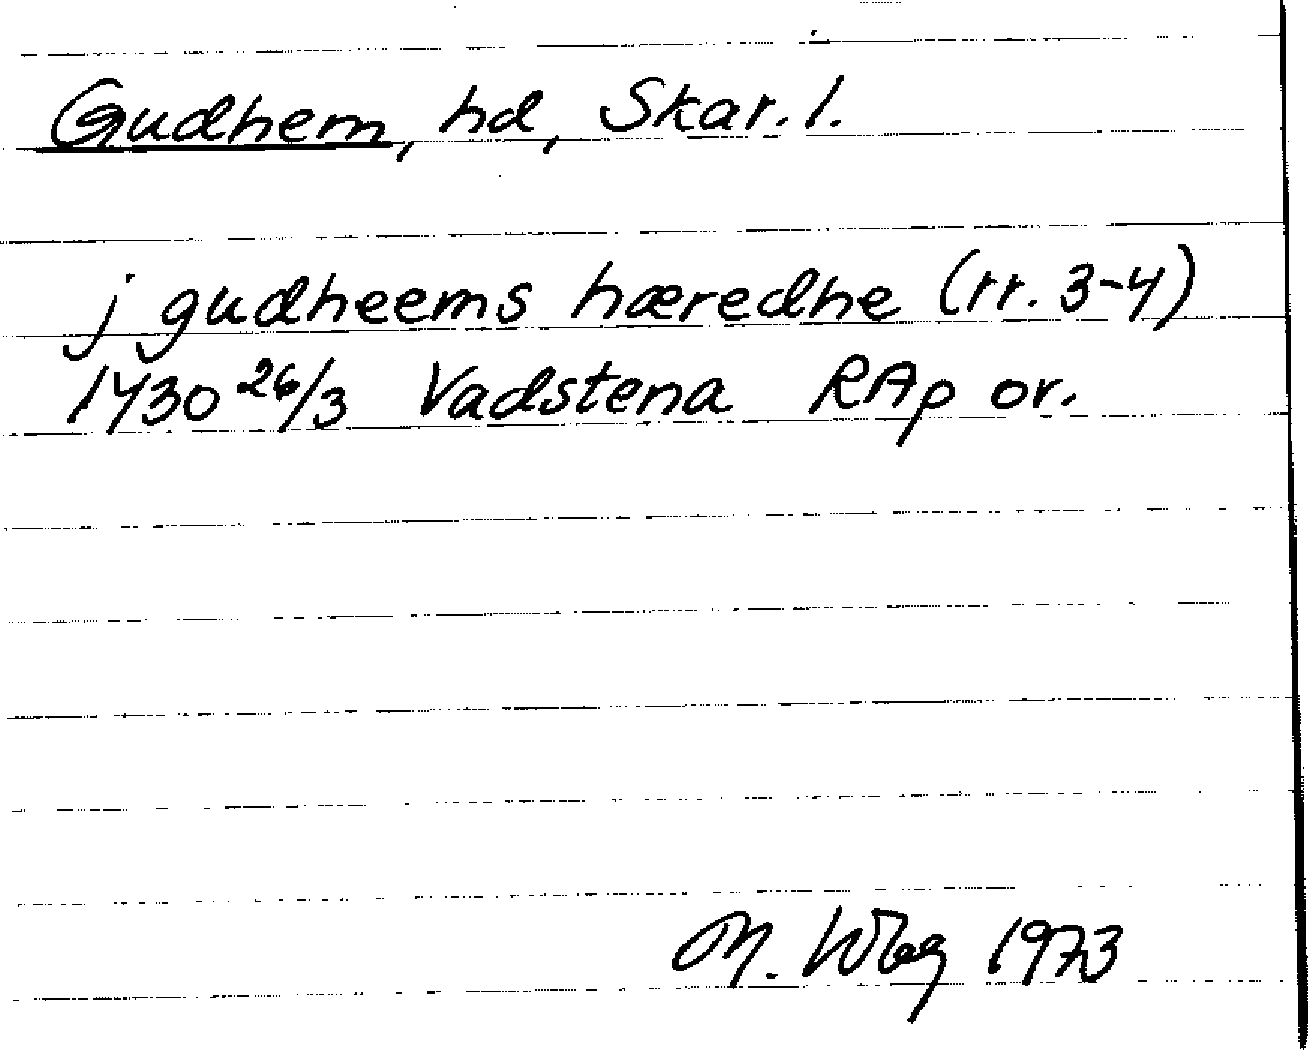 Gudhem, hd, Skar. l.
j gudheems hæredhe (rr. 3-4)
1430 26/3 Vadstena RAp or.
M. Wbg 1973